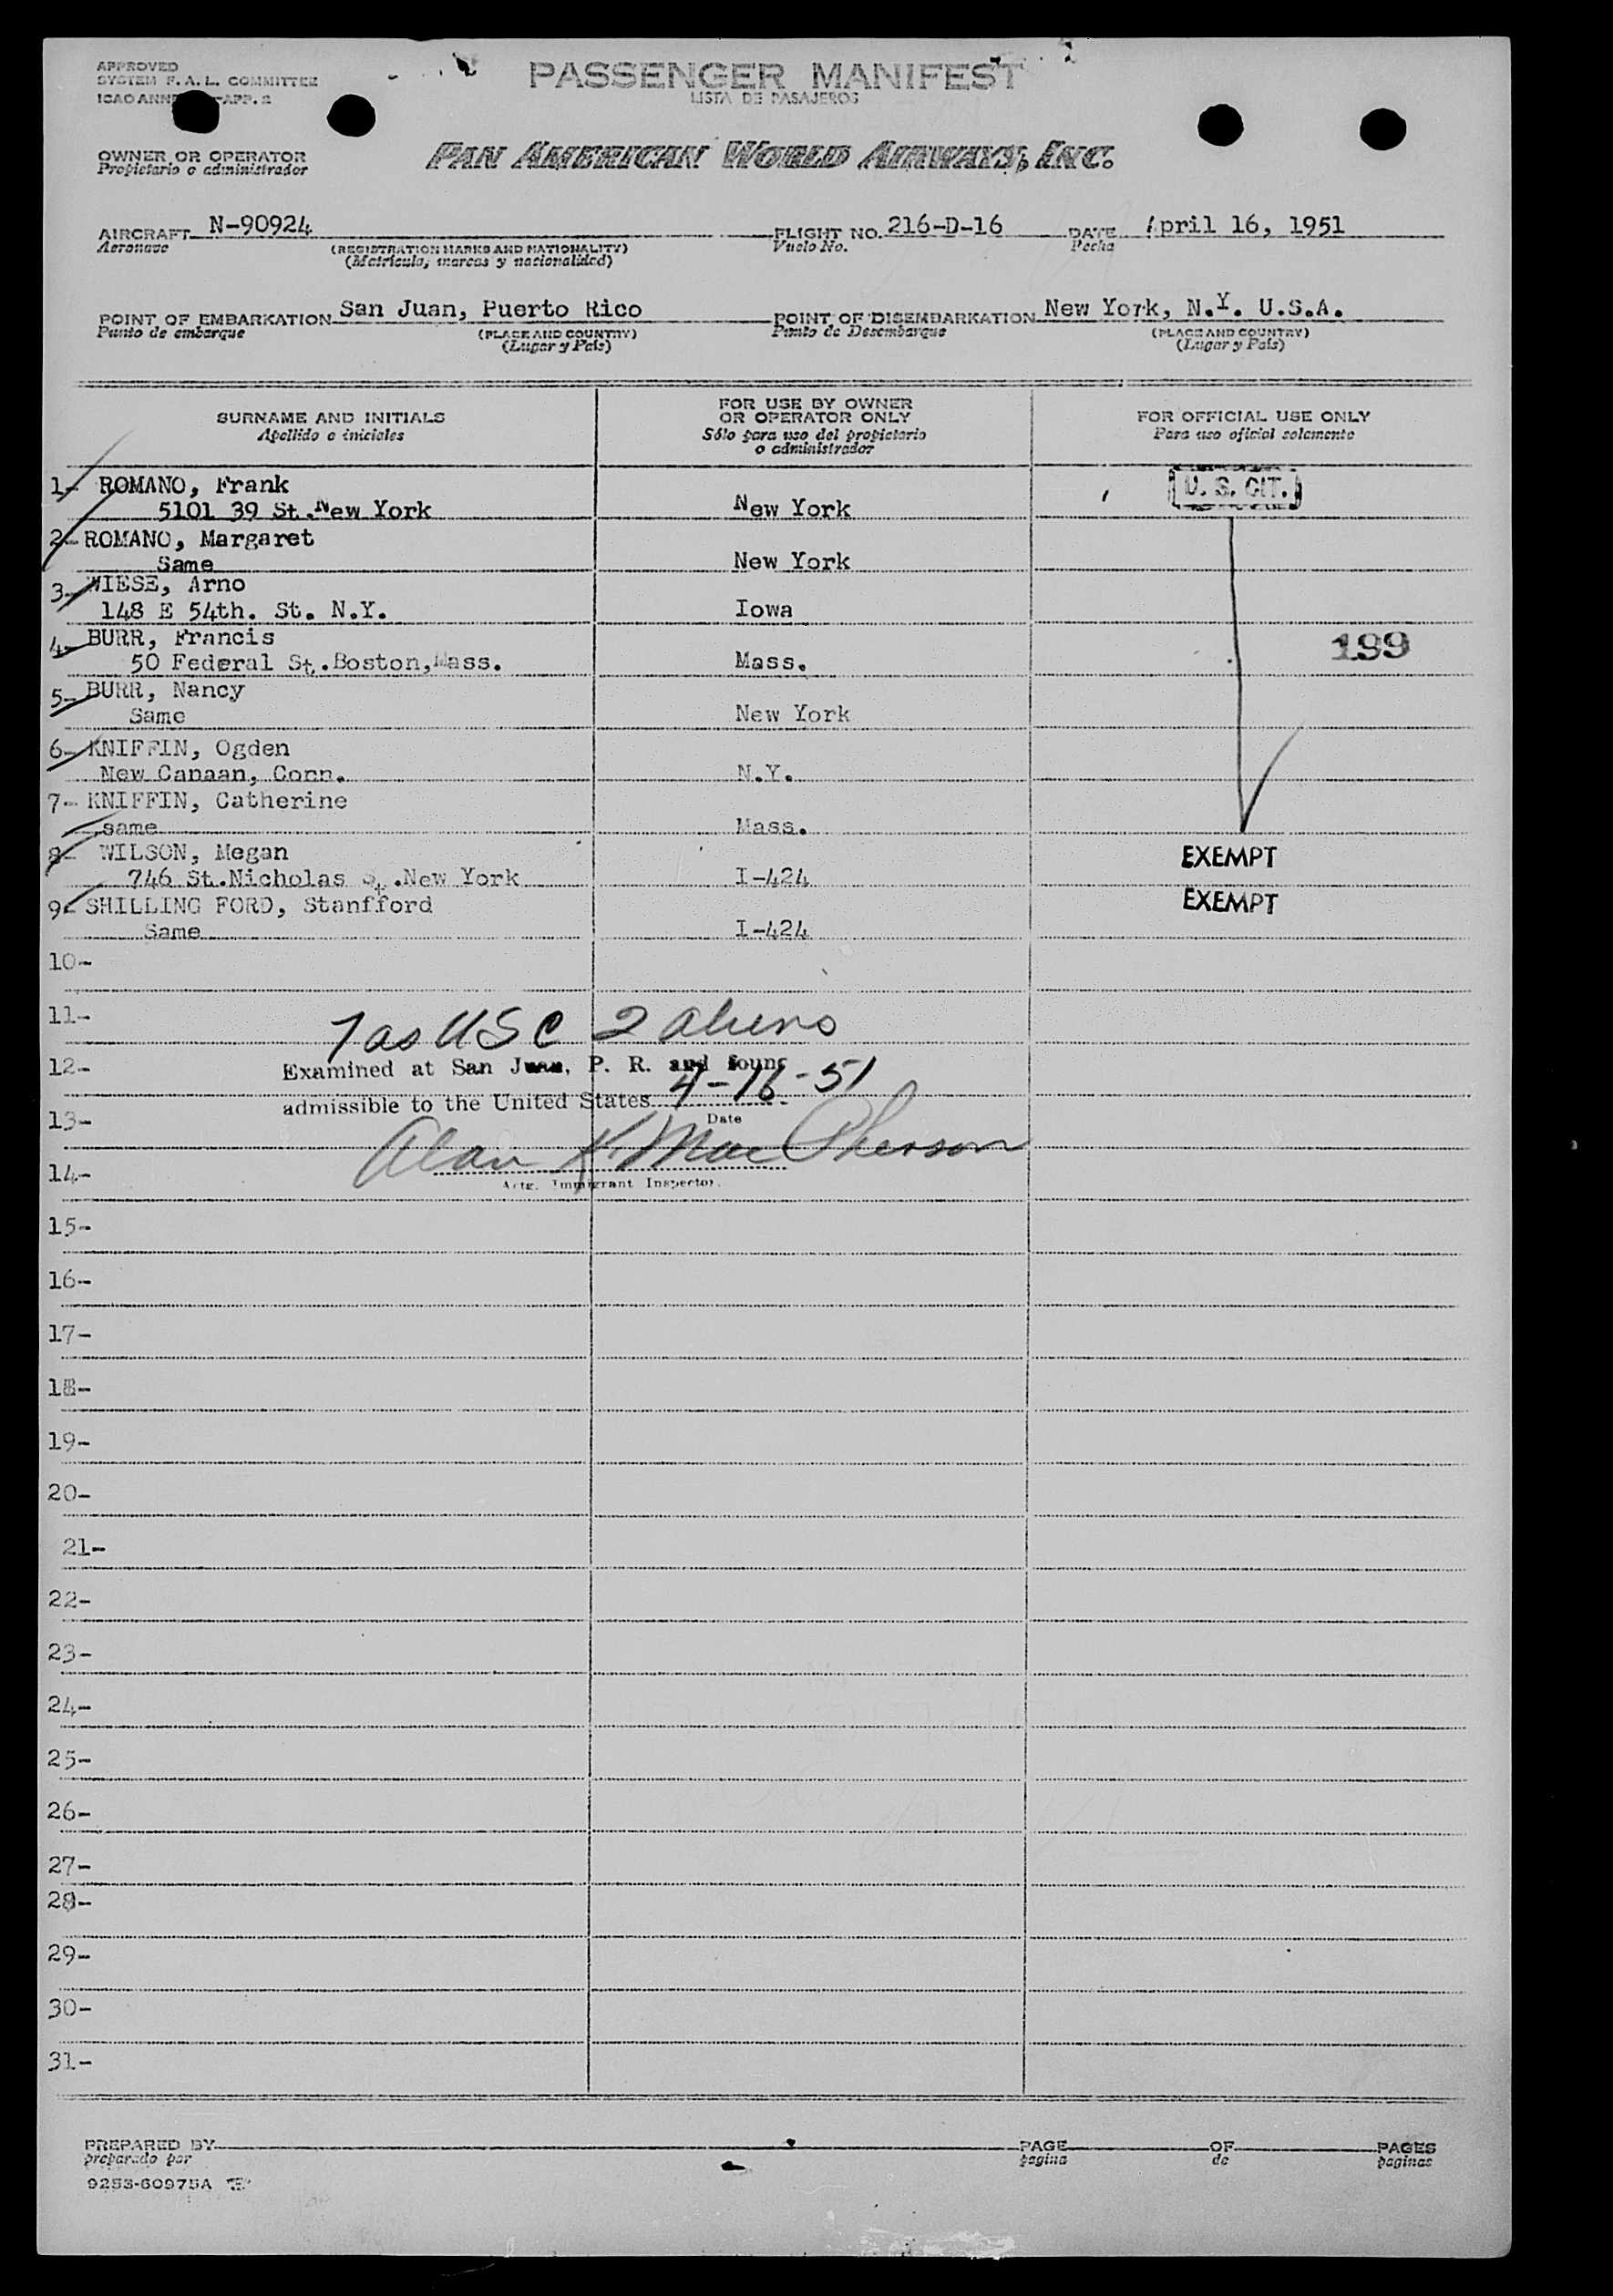 APPROVED
SYSTEM F. A. L. COMMITTEE
ICAO ANNE APP. 2
PASSENGER MANIFEST
LISTA DE PASAJEROS
OWNER OR OPERATOR
Propietario o administrador
PAN AMERICAN WORLD AIRWAYS, INC.
AIRCRAFT N-90924 FLIGHT NO. 216-D-16 DATE April 16, 1951
Aeronave (REGISTRATION MARKS AND NATIONALITY) Vuelo No. Fecha
(Matricula, marcas y nacionalidad)
POINT OF EMBARKATION San Juan, Puerto Rico POINT OF DISEMBARKATION New York, N.Y. U.S.A.
Punto de embarque (PLACE AND COUNTRY) Punto de Desembarque (PLACE AND COUNTRY)
(Lugar y País) (Lugar y País)
SURNAME AND INITIALS
Apellido e iniciales
FOR USE BY OWNER
OR OPERATOR ONLY
Sólo para uso del propietario
o administrador
FOR OFFICIAL USE ONLY
Para uso oficial solamente
1- ROMANO, Frank U. S. CIT.
5101 39 St.New York New York
2- ROMANO, Margaret
Same New York
3- WIESE, Arno
148 E 54th. St. N.Y. Iowa
4- BURR, Francis 199
50 Federal St.Boston,Mass. Mass.
5- BURR, Nancy
Same New York
6- KNIFFIN, Ogden
New Canaan, Conn. N.Y.
7- KNIFFIN, Catherine
same Mass.
8- WILSON, Megan EXEMPT
746 St.Nicholas St.New York I-424
9- SHILLING FORD, Stanfford EXEMPT
Same I-424
10-
11-
7 as USC 2 aliens
12- Examined at San Juan, P. R. and found
admissible to the United States 4-16-51
13- Date
Alan K. MacPherson
14-
Actg. Immigrant Inspector.
15-
16-
17-
18-
19-
20-
21-
22-
23-
24-
25-
26-
27-
28-
29-
30-
31-
PREPARED BY PAGE OF PAGES
preparado por pagina de paginas
9253-60975A